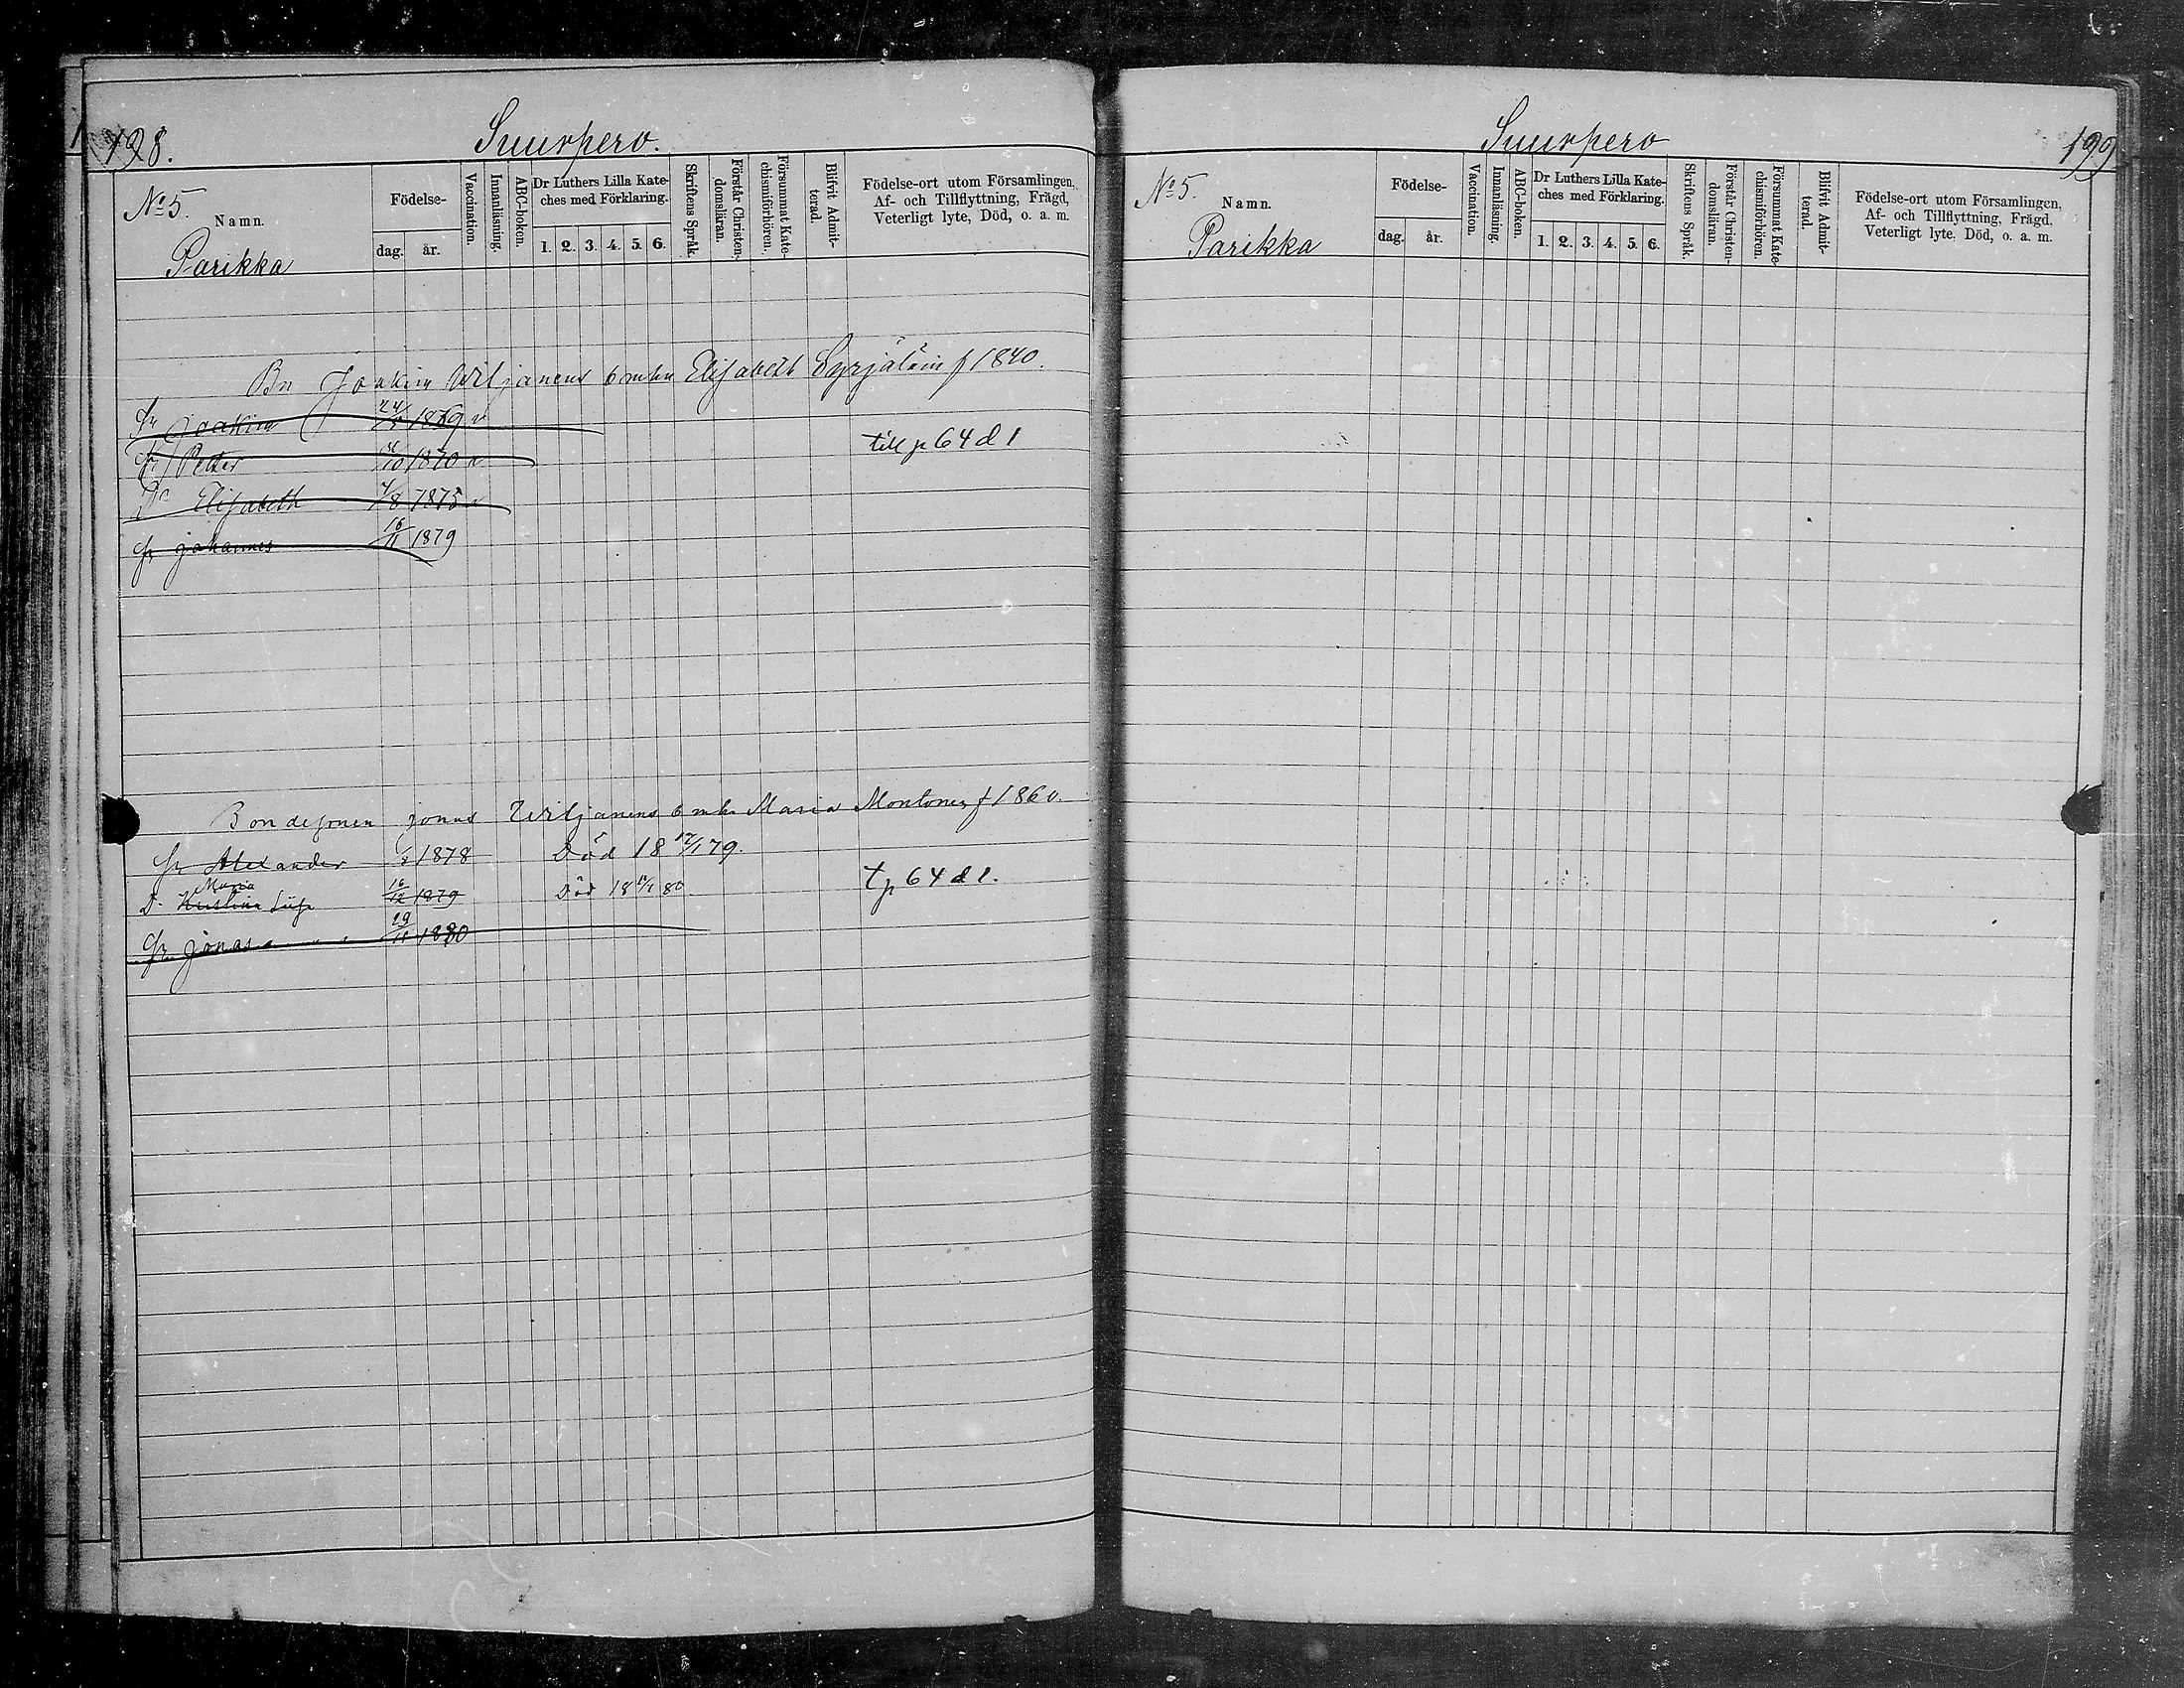 198.
Suurpero.
No 5.
Namn.
Parikka
Födelse-
dag. år.
Vaccination.
Innanläsning.
ABC-boken.
Dr Luthers Lilla Kate-
ches med Förklaring.
1. 2. 3. 4. 5. 6.
Skriftens Språk.
Förstår Christen-
domsläran.
Försummat Kate-
chismiförhören.
Blifvit Admit-
terad.
Födelse-ort utom Församlingen,
Af- och Tillflyttning, Frägd,
Veterligt lyte, Död, o. a. m.
Bn Joakim Wiljanens Elisabeth f 1840.
Joakim 1869
Petter 1870 till p 64 d 1
Dr Elisabeth 4/8 1875
Johannes 16/11 1879
Bondesonen Jonas Wiljanens Maria Montonen f 1860.
Alexander 1878 Död 18 17/1 79.
Maria
D. Kristina 16/12 1879 Död 18 80 tp 64 d 1.
Jonas 29/11 1880
Suurpero
199
No 5.
Namn.
Parikka
Födelse-
dag. år.
Vaccination.
Innanläsning.
ABC-boken.
Dr Luthers Lilla Kate-
ches med Förklaring.
1. 2. 3. 4. 5. 6.
Skriftens Språk.
Förstår Christen-
domsläran.
Försummat Kate-
chismiförhören.
Blifvit Admit-
terad.
Födelse-ort utom Församlingen,
Af- och Tillflyttning, Frägd,
Veterligt lyte, Död, o. a. m.